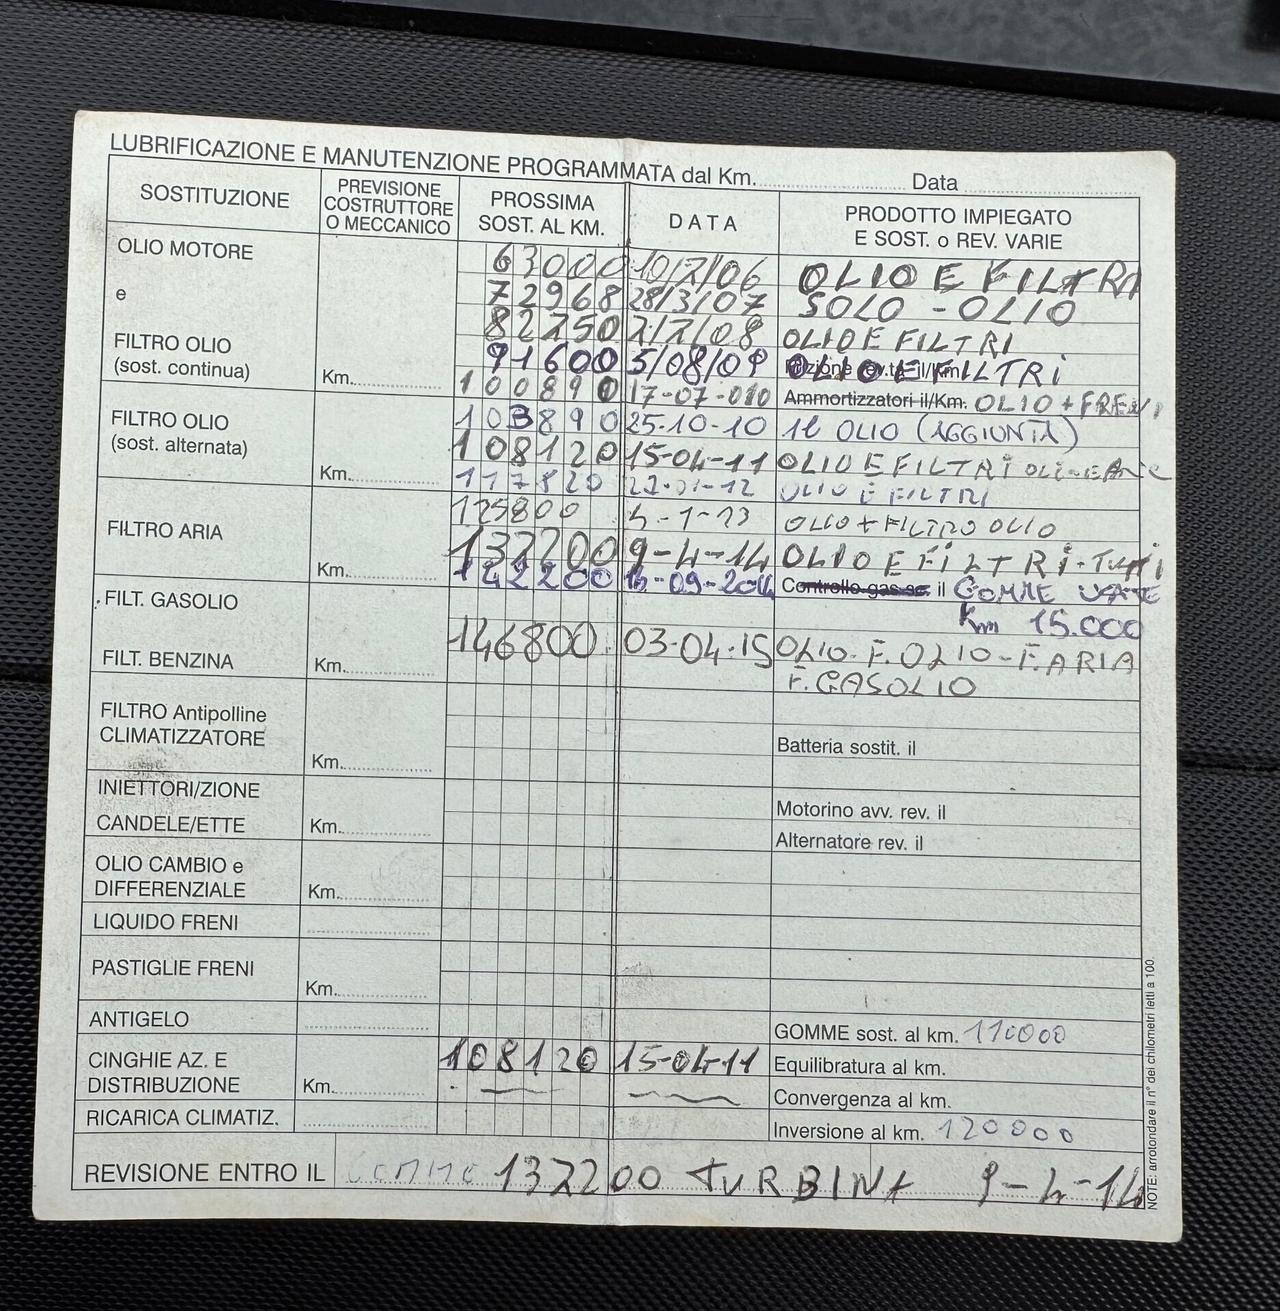 LUBRIFICAZIONE E MANUTENZIONE PROGRAMMATA dal Km. Data
SOSTITUZIONE PREVISIONE COSTRUTTORE O MECCANICO PROSSIMA SOST. AL KM. DATA PRODOTTO IMPIEGATO E SOST. o REV. VARIE
OLIO MOTORE
e
FILTRO OLIO
(sost. continua) Km.
63000 10/7/06 OLIO E FILTRI
72968 28/3/07 SOLO - OLIO
82750 7/7/08 OLIO E FILTRI
91600 5/08/09 OLIO E FILTRI
100890 17-07-010 Ammortizzatori il/Km. OLIO + FRENI
FILTRO OLIO
(sost. alternata) Km.
103890 25-10-10 1l OLIO (AGGIUNTA)
108120 15-04-11 OLIO E FILTRI
117820 12 OLIO E FILTRI
FILTRO ARIA Km.
125800 4-1-13 OLIO + FILTRO OLIO
137200 9-4-14 OLIO E FILTRI-TUTTI
142200 09-2014 Controllo gas sc. il GOMME USATE
Km 15.000
FILT. GASOLIO
FILT. BENZINA Km.
146800 03-04-15 OLIO-F.OLIO-F.ARIA
F.GASOLIO
FILTRO Antipolline
CLIMATIZZATORE Km. Batteria sostit. il
INIETTORI/ZIONE Motorino avv. rev. il
CANDELE/ETTE Km. Alternatore rev. il
OLIO CAMBIO e
DIFFERENZIALE Km.
LIQUIDO FRENI
PASTIGLIE FRENI Km.
ANTIGELO GOMME sost. al km. 110000
CINGHIE AZ. E 108120 15-04-11 Equilibratura al km.
DISTRIBUZIONE Km. Convergenza al km.
RICARICA CLIMATIZ. Inversione al km. 120000
REVISIONE ENTRO IL 137200 TURBINA 9-4-14
NOTE: arrotondare il n° dei chilometri letti a 100.